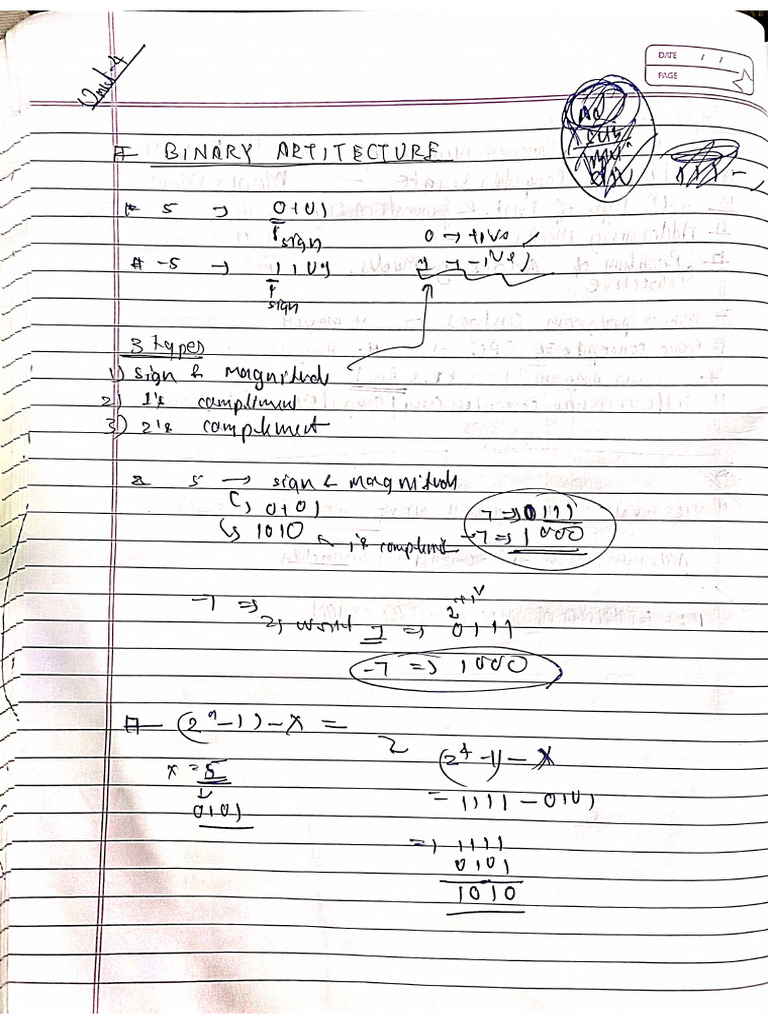 Unit-4
DATE / /
PAGE
# BINARY ARTITECTURE
# 5 → 0101
sign
0 → +ive
# -5 → 1101
1 → -ive
sign
3 types
1) sign & magnitude
2) 1's compliment
3) 2's complement
5 → sign & magnitude
↳ 0101
↳ 1010 ← 1's compliment
7 ⇒ 0111
-7 ⇒ 1000
-7 ⇒
7 ⇒ 0111
-7 ⇒ 1000
(2ⁿ-1) - x =
(2⁴-1) - x
x = 5
0101
= 1111 - 0101
⇒ 1111
0101
1010